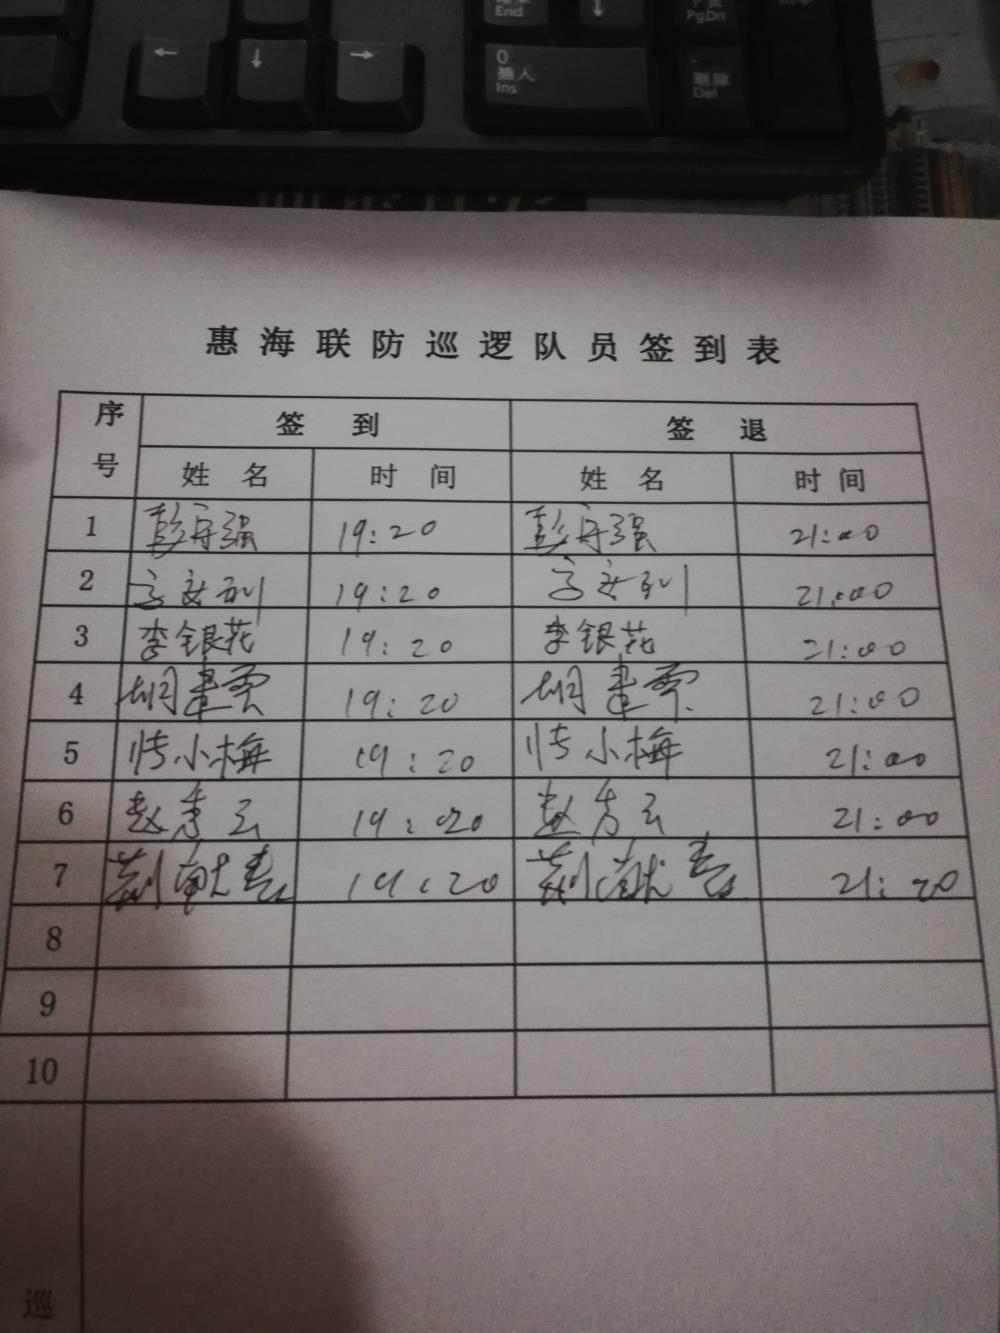 End
↓
PgDn
← ↓ →
0
插入
Ins
删除
Del
惠海联防巡逻队员签到表
序号 签到 签退
姓名 时间 姓名 时间
1 彭守强 19:20 彭守强 21:00
2 19:20 21:00
3 李银花 19:20 李银花 21:00
4 19:20 21:00
5 小梅 19:20 小梅 21:00
6 赵秀云 19:20 赵秀云 21:00
7 19:20 21:20
8
9
10
巡